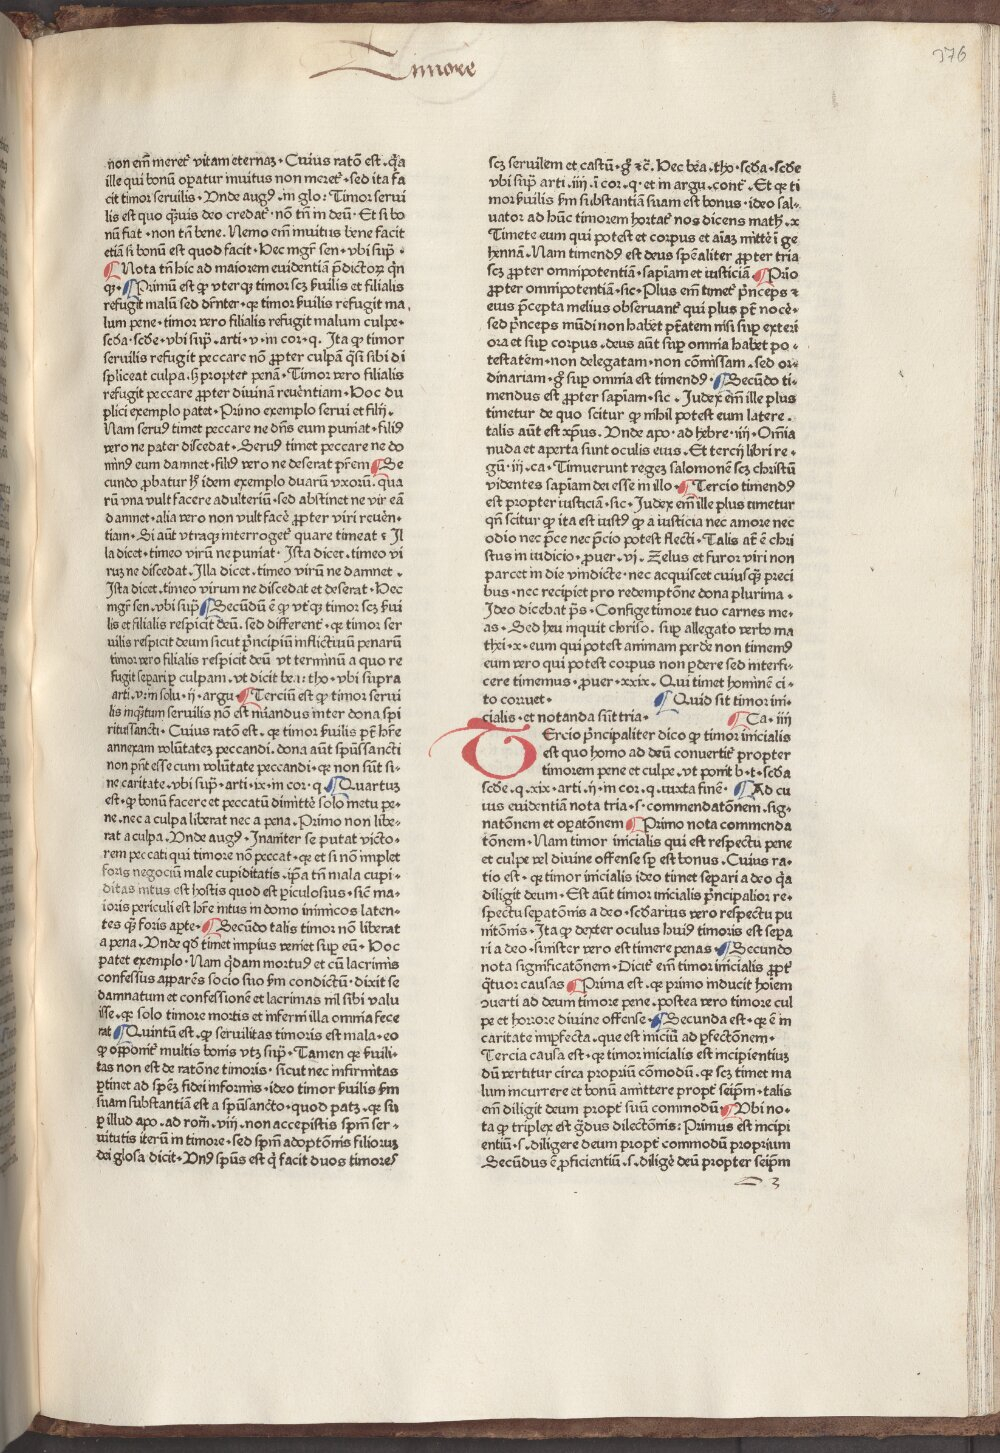 Timore
376
non em̄ meret᷑ vitam eternaꝫ · Cuius ratō est · q̄a
ille qui bonū oꝑatur inuitus non meret᷑ · sed ita fa
cit timor seruilis · Vnde augꝰ · in glo: Timor serui
lis est quo qͣuis deo credat᷑ · nō tn̄ in deū · Et si bo
nū fiat · non tn̄ bene. Nemo em̄ inuitus bene facit
etiā si bonū est quod facit · Hec mgr̄ sen · vbi suꝑ̄ ·
¶ Nota tn̄ hic ad maiorem euidentiā p̄dictoꝝ qn̄
qꝫ · ¶ Primū est ꝙ vterqꝫ timor scꝫ ẜuilis et filialis
refugit malū sed dr̄nter · qꝛ timor ẜuilis refugit ma
lum pene · timor vero filialis refugit malum culpe ·
scďa · scďe · vbi suꝑ̄ · arti · v · in cor · q · Ita ꝙ timor
seruilis refugit peccare nō ꝓpter culpā q̄si sibi di
spliceat culpa · ꜩ propter penā · Timor vero filialis
refugit peccare ꝓpter diuinā reuēntiam · Hoc du
plici exemplo patet · Primo exemplo serui et filij ·
Nam seruꝰ timet peccare ne dn̄s eum puniat · filiꝰ
vero ne pater discedat · Seruꝰ timet peccare ne do
minꝰ eum damnet · filiꝰ vero ne deserat pr̄em ¶ Se
cundo ꝓbatur ħ idem exemplo duarū vxorū · qua
rū vna vult facere adulteriū · sed abstinet ne vir eā
damnet · alia vero non vult facē ꝓpter viri reuēn·
tiam · Si aūt vtraqꝫ interroget᷑ quare timeat : Il
la dicet · timeo virū ne puniat · Ista dicet · timeo vi
ruꝫ ne discedat · Illa dicet · timeo virū ne damnet ·
Ista dicet · timeo virum ne discedat et deserat · Hec
mgr̄ sen · vbi suꝑ̄ ¶ Secūdū ē ꝙ vtqꝫ timor scꝫ ẜui
lis et filialis respicit deū · sed different᷑ · qꝛ timor ser
uilis respicit deum sicut p̄ncipiū inflictiuū penarū
timor vero filialis respicit deū vt terminū a quo re
fugit separi ꝑ culpam · vt dicit be.i: tho · vbi supra
arti · v · in solu · ij · argu ¶ Terciū est ꝙ timor serui
lis inqͣtum seruilis nō est nūandus inter dona spi
ritussancti · Cuius ratō est · qꝛ timor ẜuilis pt̄ hr̄e
annexam volūtateꝫ peccandi · dona aūt spūssancti
non pn̄t esse cum volūtate peccandi · qꝛ non sūt si·
ne caritate · vbi suꝑ̄ · arti · ix · in cor · q · ¶ Quartus
est · ꝙ bonū facere et peccatū dimittē solo metu pe·
ne · nec a culpa liberat nec a pena · Primo non libe·
rat a culpa · Vnde augꝰ · Inaniter se putat victo·
rem peccati qui timore nō peccat · qꝛ et si nō implet
foris negociū male cupiditatis · ip̄a tn̄ mala cupi·
ditas intus est hostis quod est ꝑiculosius · sicut ma·
ioris periculi est hr̄e intus in domo inimicos laten·
tes qͣ foris aꝑte · ¶ Secūdo talis timor nō liberat
a pena · Vnde qď timet impius veniet suꝑ eū · Hoc
patet exemplo · Nam q̄dam mortuꝰ et cū lacrimis
confessus apparēs socio suo ẜm condictū · dixit se
damnatum et confessionē et lacrimas nil sibi valu
isse · qꝛ solo timore mortis et inferni illa omnia fece
rat ¶ Quintū est · ꝙ seruilitas timoris est mala · eo
ꝙ opponit᷑ multis bonis vtꝫ suꝑ̄ · Tamen qꝛ ẜuili·
tas non est de ratōne timoris · sicut nec infirmitas
ꝑtinet ad spēꝫ fidei informis · ideo timor ẜuilis ẜm
suam substantiā est a spūsancto · quod patꝫ · qꝛ su
ꝑ illud apo · ad rom̄ · viij · non accepistis spm̄ ser·
uitutis iterū in timore · sed spm̄ adoptōnis filioruꝫ
dei glosa dicit · Vnꝰ spūs est q̄ facit duos timores
scꝫ seruilem et castū · gͦ ⁊c̄ · Hec bēa · tho · scďa · scďe
vbi suꝑ̄ arti · iiij · i cor · q · et in argu · cont᷑ · Et qꝛ ti
mor ẜuilis ẜm substantiā suam est bonus · ideo sal·
uator ad hūc timorem hortat᷑ nos dicens math · x
Timete eum qui potest et corpus et aīaꝫ mittē i ge
hennā · Nam timendꝰ est deus spēaliter ꝓpter tria
scꝫ ꝓpter omnipotentiā · sapiam et iusticiā ¶ Prīo
ꝓpter omnipotentiā · sic · Plus em̄ timet᷑ p̄nceps ⁊
eius p̄cepta melius obseruant᷑ qui plus pt̄ nocē·
sed p̄nceps mūdi non habet ptātem nisi suꝑ exteri
ora et suꝑ corpus · deus aūt suꝑ omnia habet po·
testatem · non delegatam · non cōmissam · sed or·
dinariam · gͦ suꝑ omnia est timendꝰ · ¶ Secūdo ti·
mendus est ꝓpter sapiam · sic · Iudex em̄ ille plus
timetur de quo scitur ꝙ nihil potest eum latere ·
talis aūt est xp̄us · Vnde apo · ad hebre · iiij · Om̄ia
nuda et aperta sunt oculis eius · Et tercij libri re·
gū · iij · ca · Timuerunt regeꝫ salomonē scꝫ christū
videntes sapiam dei esse in illo · ¶ Tercio timendꝰ
est propter iusticiā · sic · Iudex em̄ ille plus timetur
qn̄ scitur ꝙ ita est iustꝰ ꝙ a iusticia nec amore nec
odio nec p̄ce nec p̄cio potest flecti · Talis at̄ ē chri
stus in iudicio · ꝓuer · vi · Zelus et furor viri non
parcet in die vindicte · nec acquiescet cuiusqͣ preci
bus · nec recipiet pro redemptōne dona plurima ·
Ideo dicebat ps̄ · Confige timore tuo carnes me·
as · Sed heu inquit chriso · suꝑ allegato verbo ma
thei · x · eum qui potest animam ꝑdē non timendꝰ
eum vero qui potest corpus non ꝑdere sed interfi·
cere timemus · ꝓuer · xxix · Qui timet hominē ci·
to corruet · ¶ Quid sit timor ini·
cialis · et notanda sūt tria · ¶ Ca · iij
TErcio p̄ncipaliter dico ꝙ timor inicialis
est quo homo ad deū conuertit᷑ propter
timorem pene et culpe · vt ponit b · t · scďa
scďe · q · xix · arti · ij · in cor · q · iuxta finē · ¶ Ad cu
ius euidentiā nota tria · s · commendatōnem · sig·
natōnem et oꝑatōnem ¶ Primo nota commenda
tōnem · Nam timor inicialis qui est respectu pene
et culpe vel diuine offense sꝑ est bonus · Cuius ra·
tio est · qꝛ timor inicialis ideo timet separi a deo q̄a
diligit deum · Est aūt timor inicialis p̄ncipalior re·
spectu seꝑatōnis a deo · scďarius vero respectu pu
nitōnis · Ita ꝙ dexter oculus huiꝰ timoris est sepa
ri a deo · sinister vero est timere penas · ¶ Secundo
nota significatōnem · Dicit᷑ em̄ timor inicialis ꝓpt᷑
q̄tuor causas ¶ Prima est · qꝛ primo inducit hoīem
ꝯuerti ad deum timore pene · postea vero timore cul
pe et horrore diuine offense · ¶ Secunda est · qꝛ ē in
caritate imꝑfecta · que est iniciū ad ꝑfectōnem ·
Tercia causa est · qꝛ timor inicialis est incipientiuꝫ
dū vertitur circa propriū cōmodū · qꝛ scꝫ timet ma
lum incurrere et bonū amittere propt᷑ seip̄m · talis
em̄ diligit deum propt᷑ suū commodū ¶ Vbi no·
ta ꝙ triplex est gͣdus dilectōnis: Primus est incipi
entiū · s · diligere deum propt᷑ commodū proprium
Secūdus ē ꝓficientiū · s · diligē deū propter seip̄m
C 3